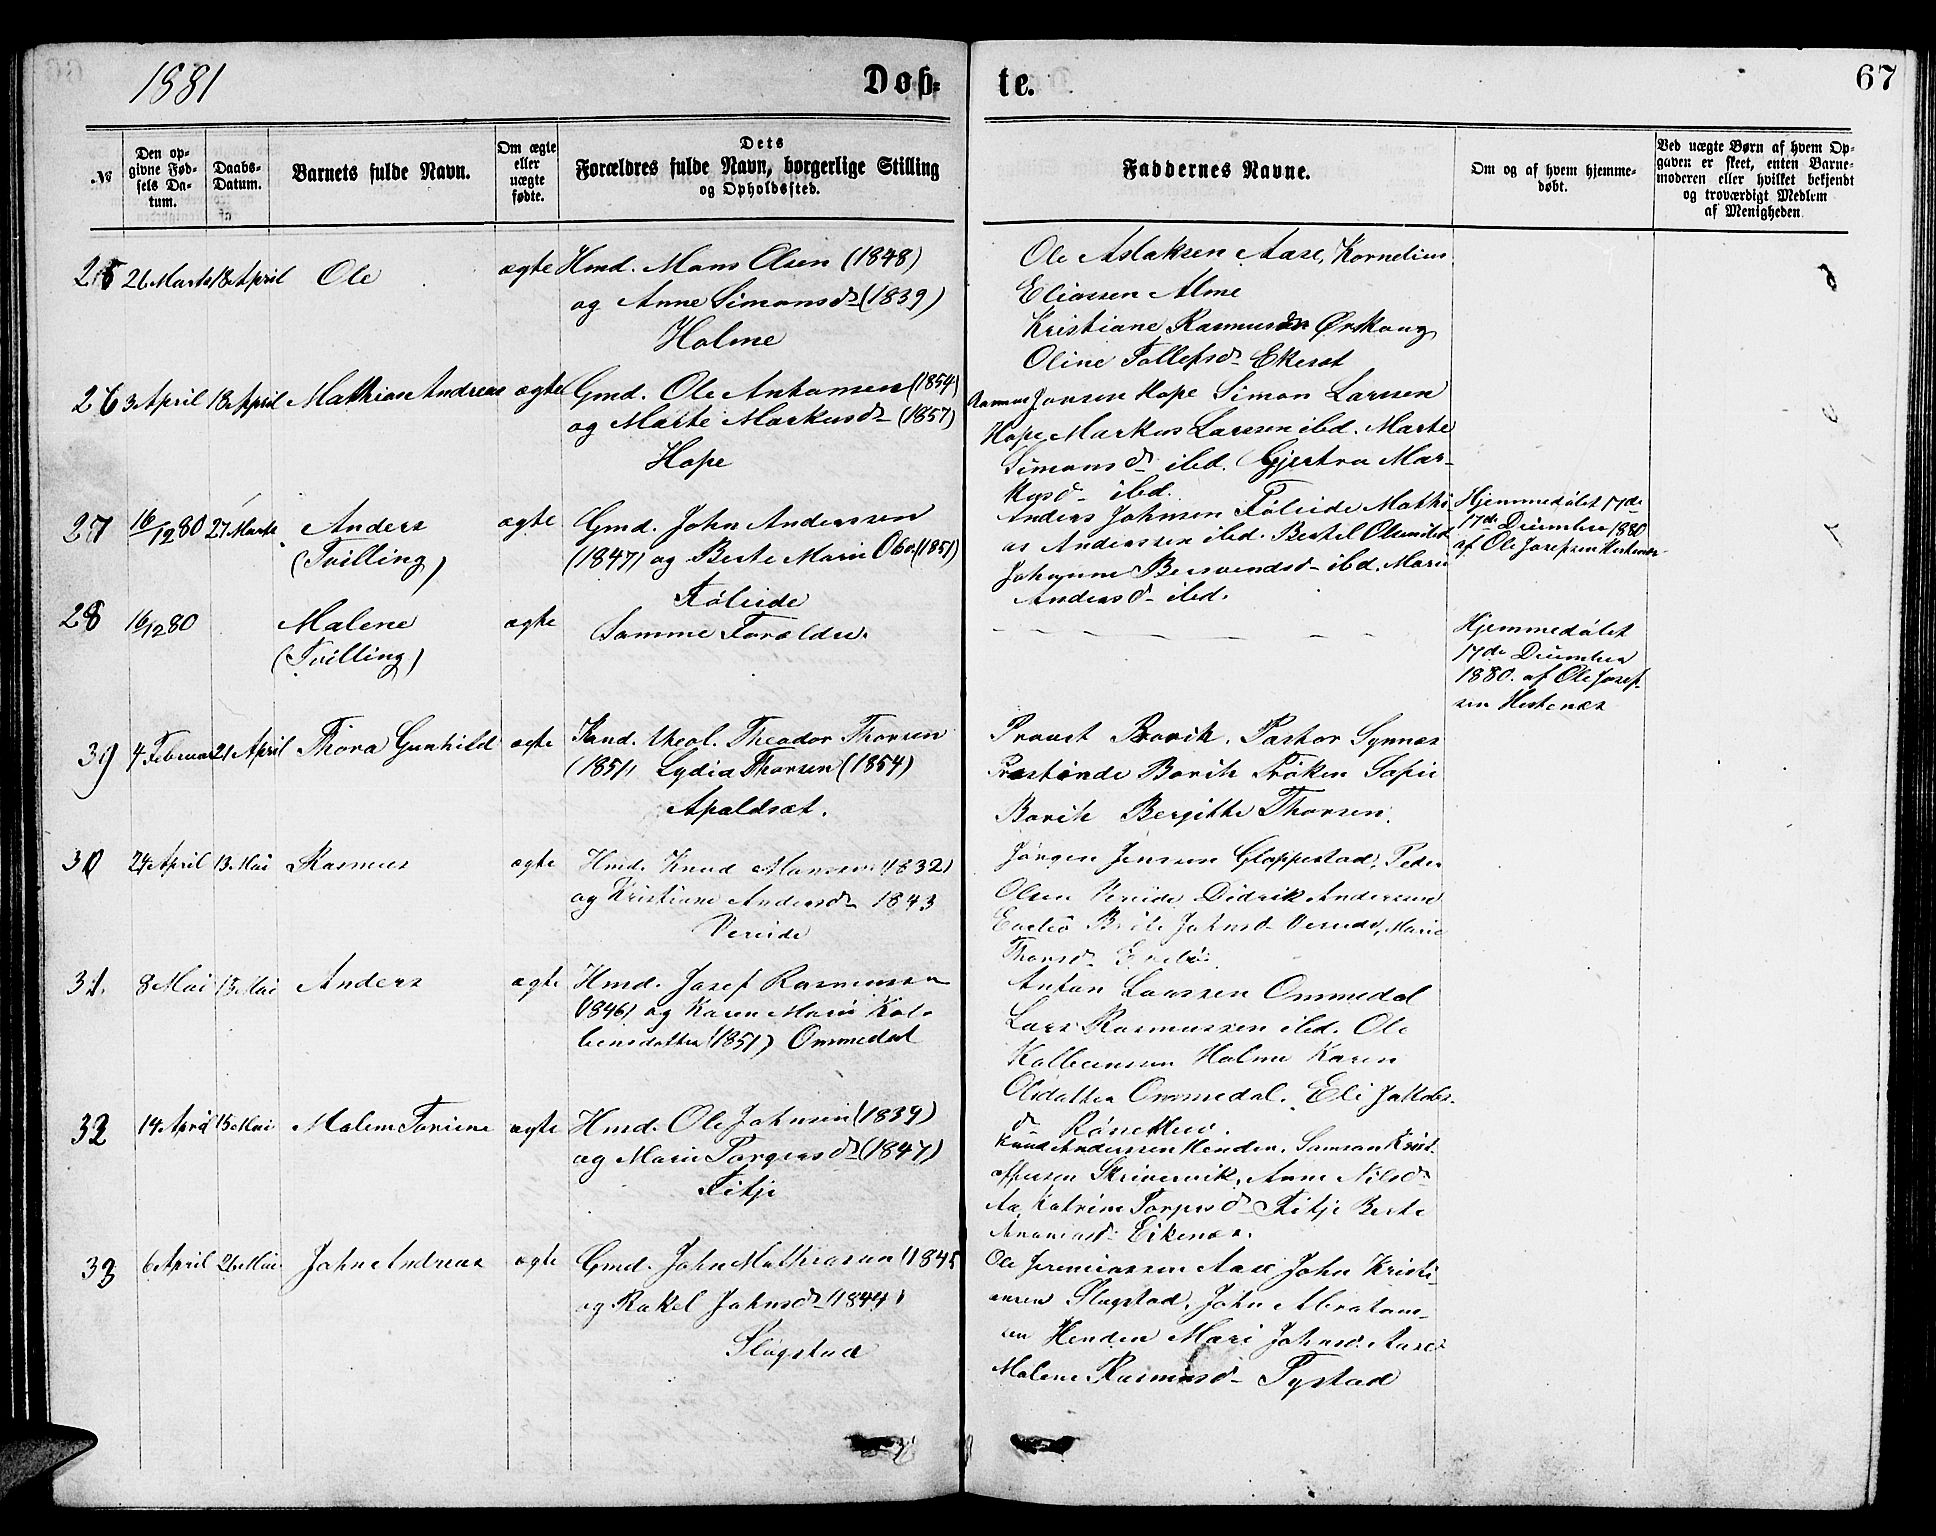 1881
Døb-
te.
67
№
Den op-
givne Fød-
sels Da-
tum.
Daabs-
Datum.
Barnets fulde Navn.
Om ægte
eller
uægte
fødte.
Dets
Forældres fulde Navn, borgerlige Stilling
og Opholdssted.
Faddernes Navne.
Om og af hvem hjemme-
døbt.
Ved uægte Børn af hvem Op-
gaven er skeet, enten Barne-
moderen eller hvilket bekjendt
og troværdigt Medlem
af Menigheden.
25 26 Marts 18 April Ole ægte Hmd. Mons Olsen (1848)
og Anne Simonsd (1839)
Holme
Ole Aslaksen Aase, Kornelius
Eliassen Alme
Kristiane Rasmusdn Ørskoug
Oline Tollefsd Ekeset
26 3 April 18 April Mathias Andreas ægte Gmd. Ole Antonsen (1854)
og Marte Markusd (1857)
Hope
Rasmus Jonsen Hope Simon Larssen
Hope, Markus Larssen ibd. Marte
Simonsd ibd. Gjertra Mar-
kusd ibd.
27 16/12 80 27 Marts Anders ægte Gmd. John Anderssen
(Tvilling) (1847) og Berte Marie Olsd (1851)
Føleide
Anders Johnsen Føleide Mathi-
as Anderssen ibd. Bertel Olsen ibd
Johanne Bersvendsd ibd. Marie
Andersd ibd.
Hjemmedøbt 17de
17de December 1880
af Ole Josefsen Hestenæs
28 16/12 80 Malene ægte Samme Forældre.
(Tvilling)
Hjemmedøbt
17de December
1880. af Ole Josef-
sen Hestenæs
39 4 Februar 21 April Thora Gunhild ægte Kand. theol. Theodor Thorsen
(1851, Lydia Thorsen (1854)
Apaldsæt.
Provst Borik. Pastor Synnes
Præstinde Borik Frøken Sofie
Borik Bergitte Thorsen.
30 24 April 13 Mai Rasmus ægte Hmd. Knud Monssen (1832)
og Kristiane Andersd 1843
Vereide
Jørgen Jenssen Gloppestad, Peder
Olsen Vereide Didrik Anderssen
Evebø Brite Johnsd Vereide, Marie
Thorsd Evebø.
31. 8 Mai 13 Mai Anders ægte Hmd. Josef Rasmussen
(1846) og Karen Marie Kol-
bensdatter (1851) Ommedal
Anton Larssen Ommedal
Lars Rasmussen ibd. Ole
Kolbenssen Holme Karen
Olsdatter Ommedal. Eli Jakobs-
d
32 14 April 15 Mai Malene Toriene ægte Hmd. Ole Johnsen (1839)
og Marie Torgersd (1847)
Fitje
Knud Anderssen Henden. Samson Krist-
offersen Skrivervik, Anne Nilsd
Aa, Katrine Torgersd Fitje Berte
Ananiasd Eikenæs.
33 6 April 26 Mai John Andreas ægte Gmd. John Mathiassen (1845
og Rakel Johnsd (1844)
Sløgstad
Ole Jeremiassen Aase John Kristi-
ansen Slogstad, John Abraham-
sen Henden Mari Johnsd Aase
Malene Rasmusd Tystad